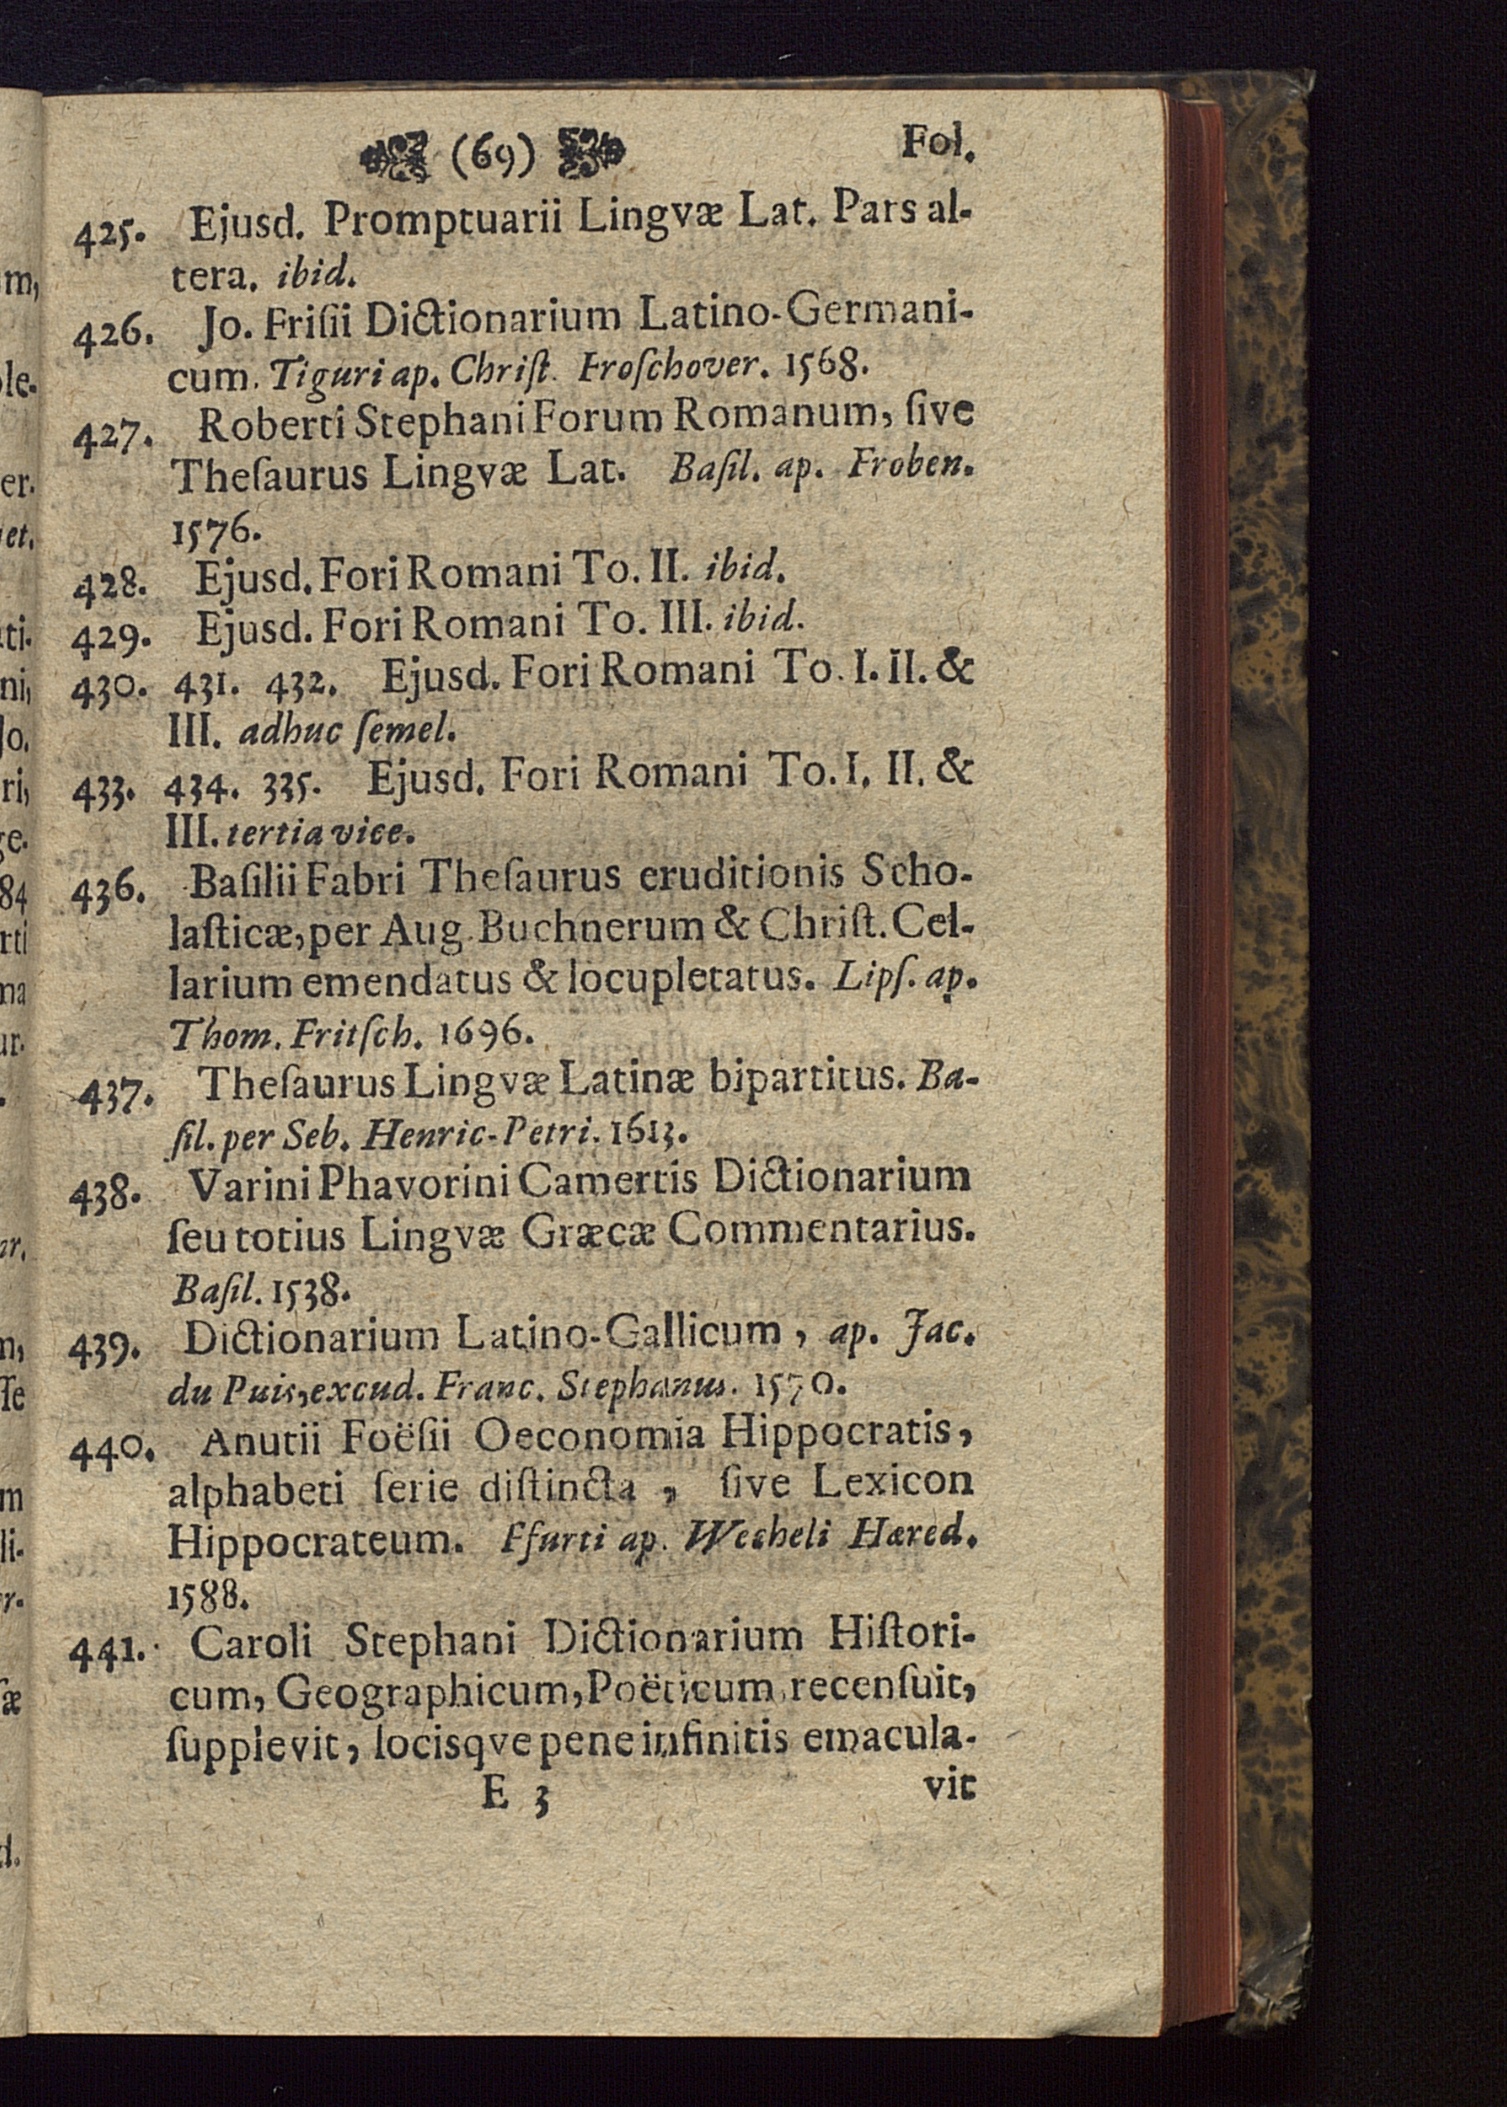 (69) Fol.
425. Ejusd. Promptuarii Lingvæ Lat. Pars al-
tera. ibid.
426. Jo. Friſii Dictionarium Latino-Germani-
cum. Tiguri ap. Chriſt. Froſchover. 1568.
427. Roberti Stephani Forum Romanum, ſive
Theſaurus Lingvæ Lat. Baſil. ap. Froben.
1576.
428. Ejusd. Fori Romani To. II. ibid.
429. Ejusd. Fori Romani To. III. ibid.
430. 431. 432. Ejusd. Fori Romani To. I. II. &
III. adhuc ſemel.
433. 434. 335. Ejusd. Fori Romani To. I. II. &
III. tertia vice.
436. Baſilii Fabri Theſaurus eruditionis Scho-
laſticæ, per Aug. Buchnerum & Chriſt. Cel-
larium emendatus & locupletatus. Lipſ. ap.
Thom. Fritſch. 1696.
437. Theſaurus Lingvæ Latinæ bipartitus. Ba-
ſil. per Seb. Henric-Petri. 1613.
438. Varini Phavorini Camertis Dictionarium
ſeu totius Lingvæ Græcæ Commentarius.
Baſil. 1538.
439. Dictionarium Latino-Gallicum, ap. Jac.
du Puis, excud. Franc. Stephanus. 1570.
440. Anutii Foëſii Oeconomia Hippocratis,
alphabeti ſerie diſtincta, ſive Lexicon
Hippocrateum. Ffurti ap. Wecheli Hæred.
1588.
441. Caroli Stephani Dictionarium Hiſtori-
cum, Geographicum, Poëticum, recenſuit,
ſupplevit, locisqve pene infinitis emacula-
E 3 vit